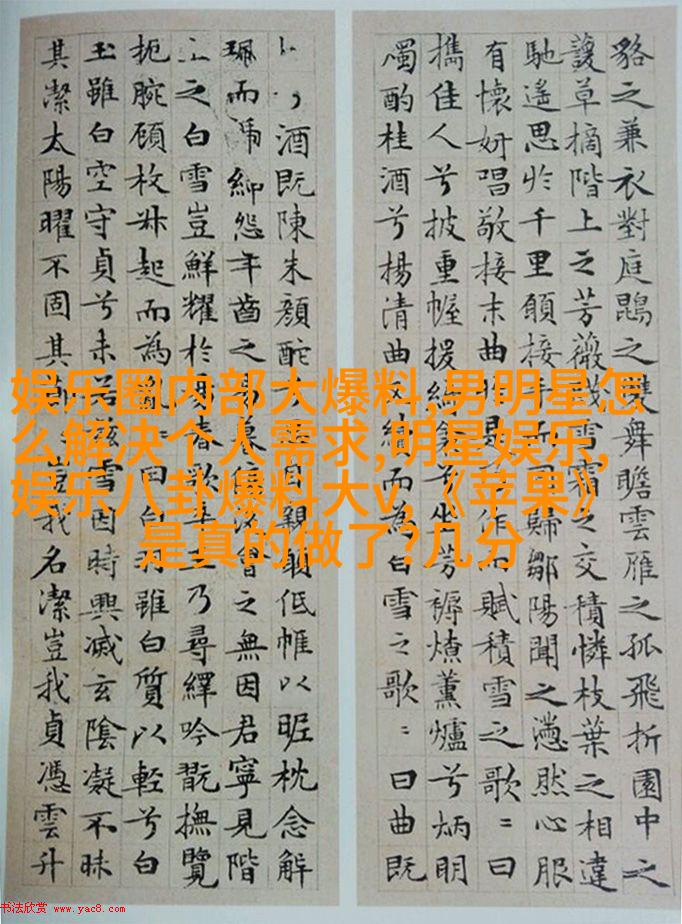 貉之兼衣對庭鵾之雙舞瞻雲雁之孤飛折園中之
草摘階上之芳薇踐雪霜之交積憐枝葉之相違
馳遥思於千里願接手而同歸鄒陽聞之懣然心服
有懷妍唱敬接末曲於是作而賦積雪之歌〻曰
攜佳人兮披重幄援綺衾兮坐芳褥燎薰爐兮炳明
燭酌桂酒兮揚清曲又續而為白雪之歌〻曰曲既
兮酒既陳朱顏酡親願低帷以昵枕念解
珮而褫紳怨年之易暮傷後會之無因君寧見階
上之白雪豈鮮耀於陽春歌卒王乃尋繹吟翫撫覽
扼腕顧枚叔起而為亂曰白羽雖白質以輕兮白
玉雖白空守貞兮未若茲雪因時興滅玄陰凝不昧
其潔太陽曜不固其節豈我名潔豈我貞憑雲升
娱乐圈内部大爆料,男明星怎
么解决个人需求,明星娱乐,
娱乐八卦爆料大v,《苹果》
是真的做了?几分
书法欣赏 www.yac8.com